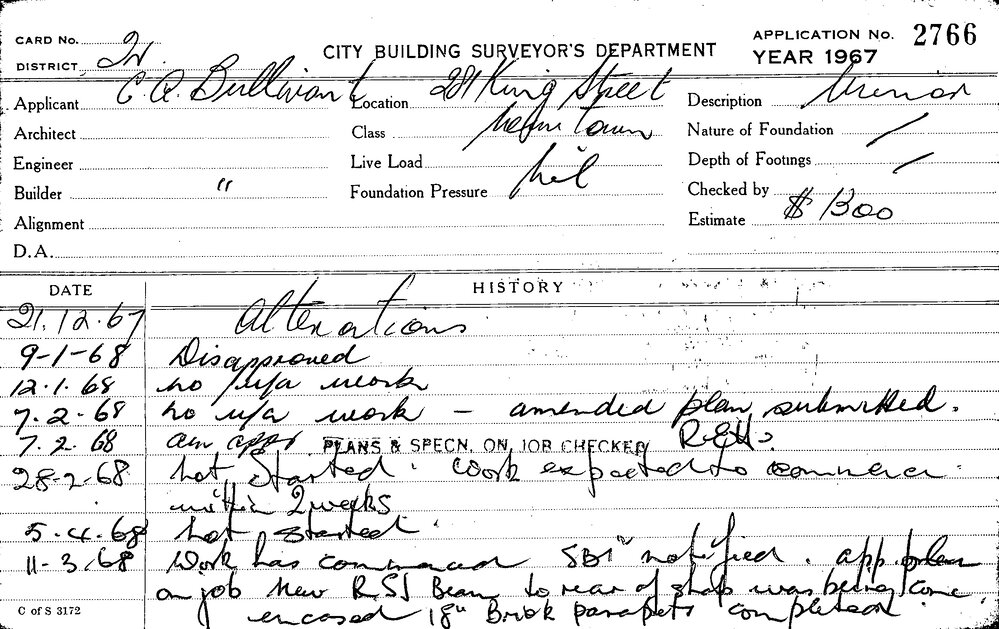 CARD No. 2w.
DISTRICT
CITY BUILDING SURVEYOR'S DEPARTMENT
APPLICATION No. 2766
YEAR 1967
Applicant Bullivant
Architect
Engineer
Builder "
Alignment
D.A.
Location 281 King Street
Class Newtown
Live Load Nil
Foundation Pressure
Description Minor
Nature of Foundation /
Depth of Footings /
Checked by
Estimate $ 1300
DATE HISTORY
21.12.67 Alterations
9-1-68 Disapproved
12.1.68 no u/a work
7.2.68 no u/a work - amended plan submitted.
7.2.68 am app PLANS & SPECN. ON JOB CHECKED
28-2-68 not started. work expected to commence
within 2 weeks
5.4.68 not started.
11-3.68 Work has commenced SBI notified. app. plan
on job new R.S.J Beam to rear of shop was being conc
encased 18" Brick parapets completed.
C of S 3172